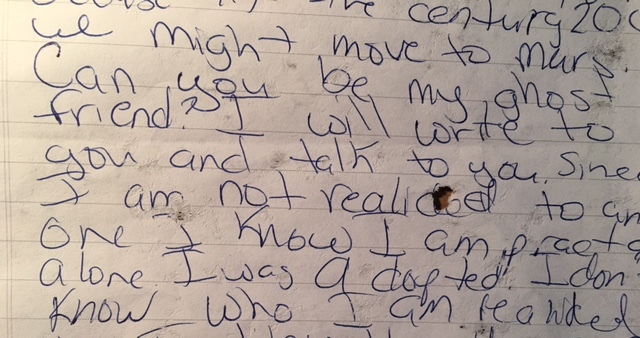 the century 20
we might move to Mars.
Can you be my ghost
friend? I will write to
you and talk to you. Since
I am not realided to an
one I know I am practa
alone. I was adopted! I don
Know who I am realided